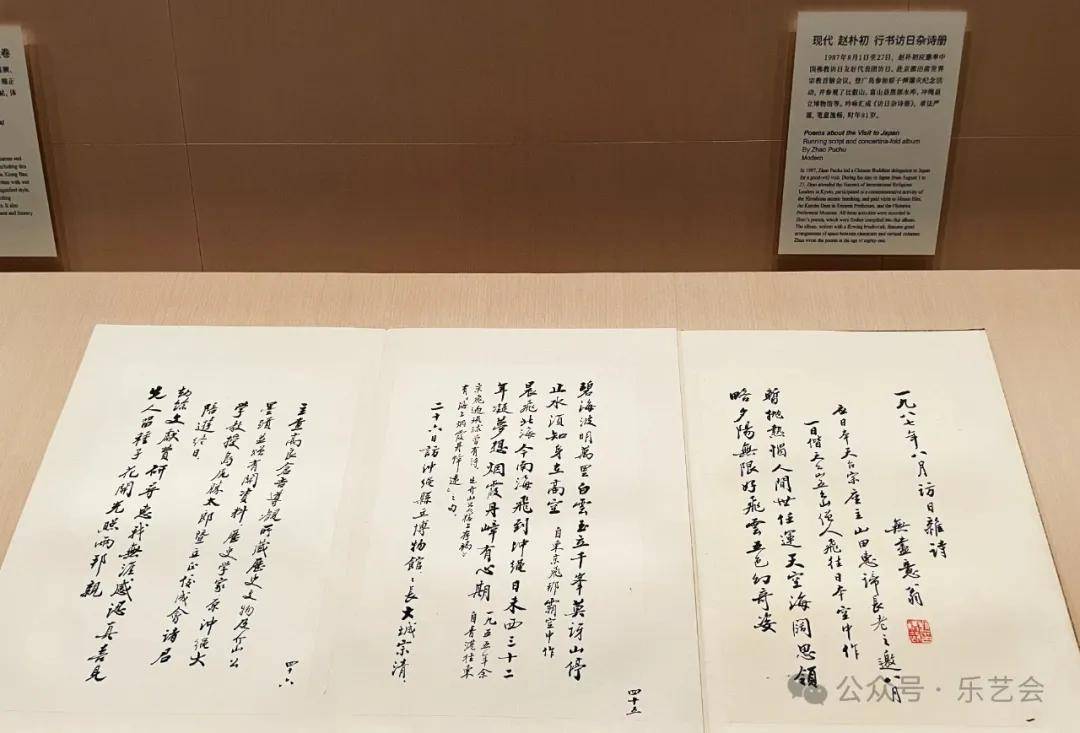 卷
现代 赵朴初 行书访日杂诗册
1987年8月1日至27日，赵朴初应邀率中
国佛教访日友好代表团访日，赴京都出席世界
宗教首脑会议，登广岛参加原子弹爆炸纪念活
动，并参观了比叡山、富山县黑部水库、冲绳县
立博物馆等，吟咏汇成《访日杂诗册》，章法严
谨，笔意流畅，时年81岁。
Poems about the Visit to Japan
Running script and concertina-fold album
By Zhao Puchu
Modern
In 1987, Zhao Puchu led a Chinese Buddhist delegation to Japan
for a good-will visit. During his stay in Japan from August 1 to
27, Zhao attended the Summit of International Religious
Leaders in Kyoto, participated in a commemorative activity of
the Hiroshima atomic bombing, and paid visits to Mount Hiei,
the Kurobe Dam in Toyama Prefecture, and the Okinawa
Prefectural Museum. All these activities were recorded in
Zhao's poems, which were further compiled into this album.
The album, written with a flowing brushwork, features good
arrangement of space between characters and vertical columns.
Zhao wrote the poems at the age of eighty-one.
一九八七年八月訪日雜詩
無盡意翁
應日本天台宗座主山田惠諦長老之邀八月
一日偕天台山五台山僧人飛往日本空中作
暫抛熱惱人間世任運天空海闊思領
略夕陽無限好飛雲五色幻奇姿
一
碧海波明萬里白雲玉立千峯莫訝山停
止水須知身在高空 自東京飛那霸空中作
晨飛北海今南海飛到沖繩日未西三十二
年凝夢想烟霞丹嶂有心期 一九五五年余
自香港往東
二十六日訪沖繩縣立博物館館長大城宗清
四十五
主重高良倉吉導観所藏歷史文物及
墨蹟並贈有関資料歷史學家原沖繩大
學教授島尻勝太郎暨立正佼成會諸君
陪遊終日
勤搜文獻費研尋惠我無涯感認真喜見
先人留種子花開光照兩邦親
四十六
公众号·乐艺会